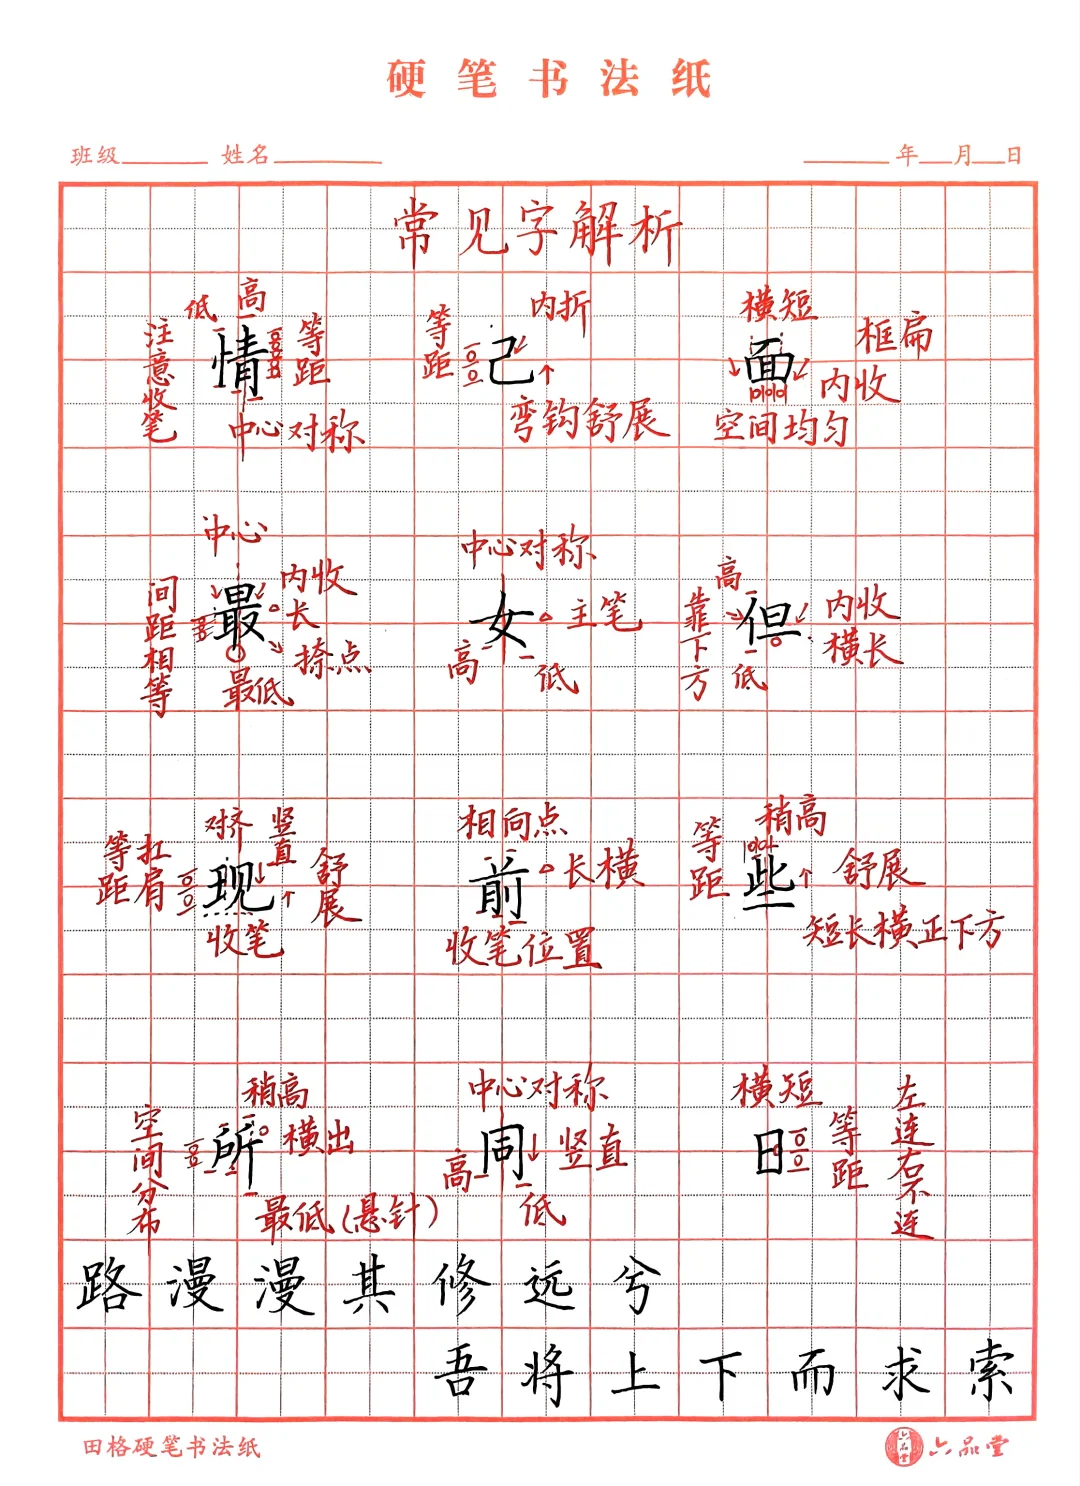 硬笔书法纸
班级 姓名 年 月 日
常见字解析
低 高 等距 注意收笔 情 中心对称
等距 内折 己 弯钩舒展
横短 框扁 面 内收 空间均匀
中心 间距相等 内收 长 最 捺点 最低
中心对称 女 主笔 高 低
高 靠下方 但 内收 横长 低
等距 扛肩 对齐 竖直 现 舒展 收笔
相向点 前 长横 收笔位置
等距 稍高 些 舒展 短长横正下方
空间分布 稍高 所 横出 最低(悬针)
中心对称 同 竖直 高 低
横短 日 等距 左连右不连
路漫漫其修远兮
吾将上下而求索
田格硬笔书法纸
六品堂 六品堂